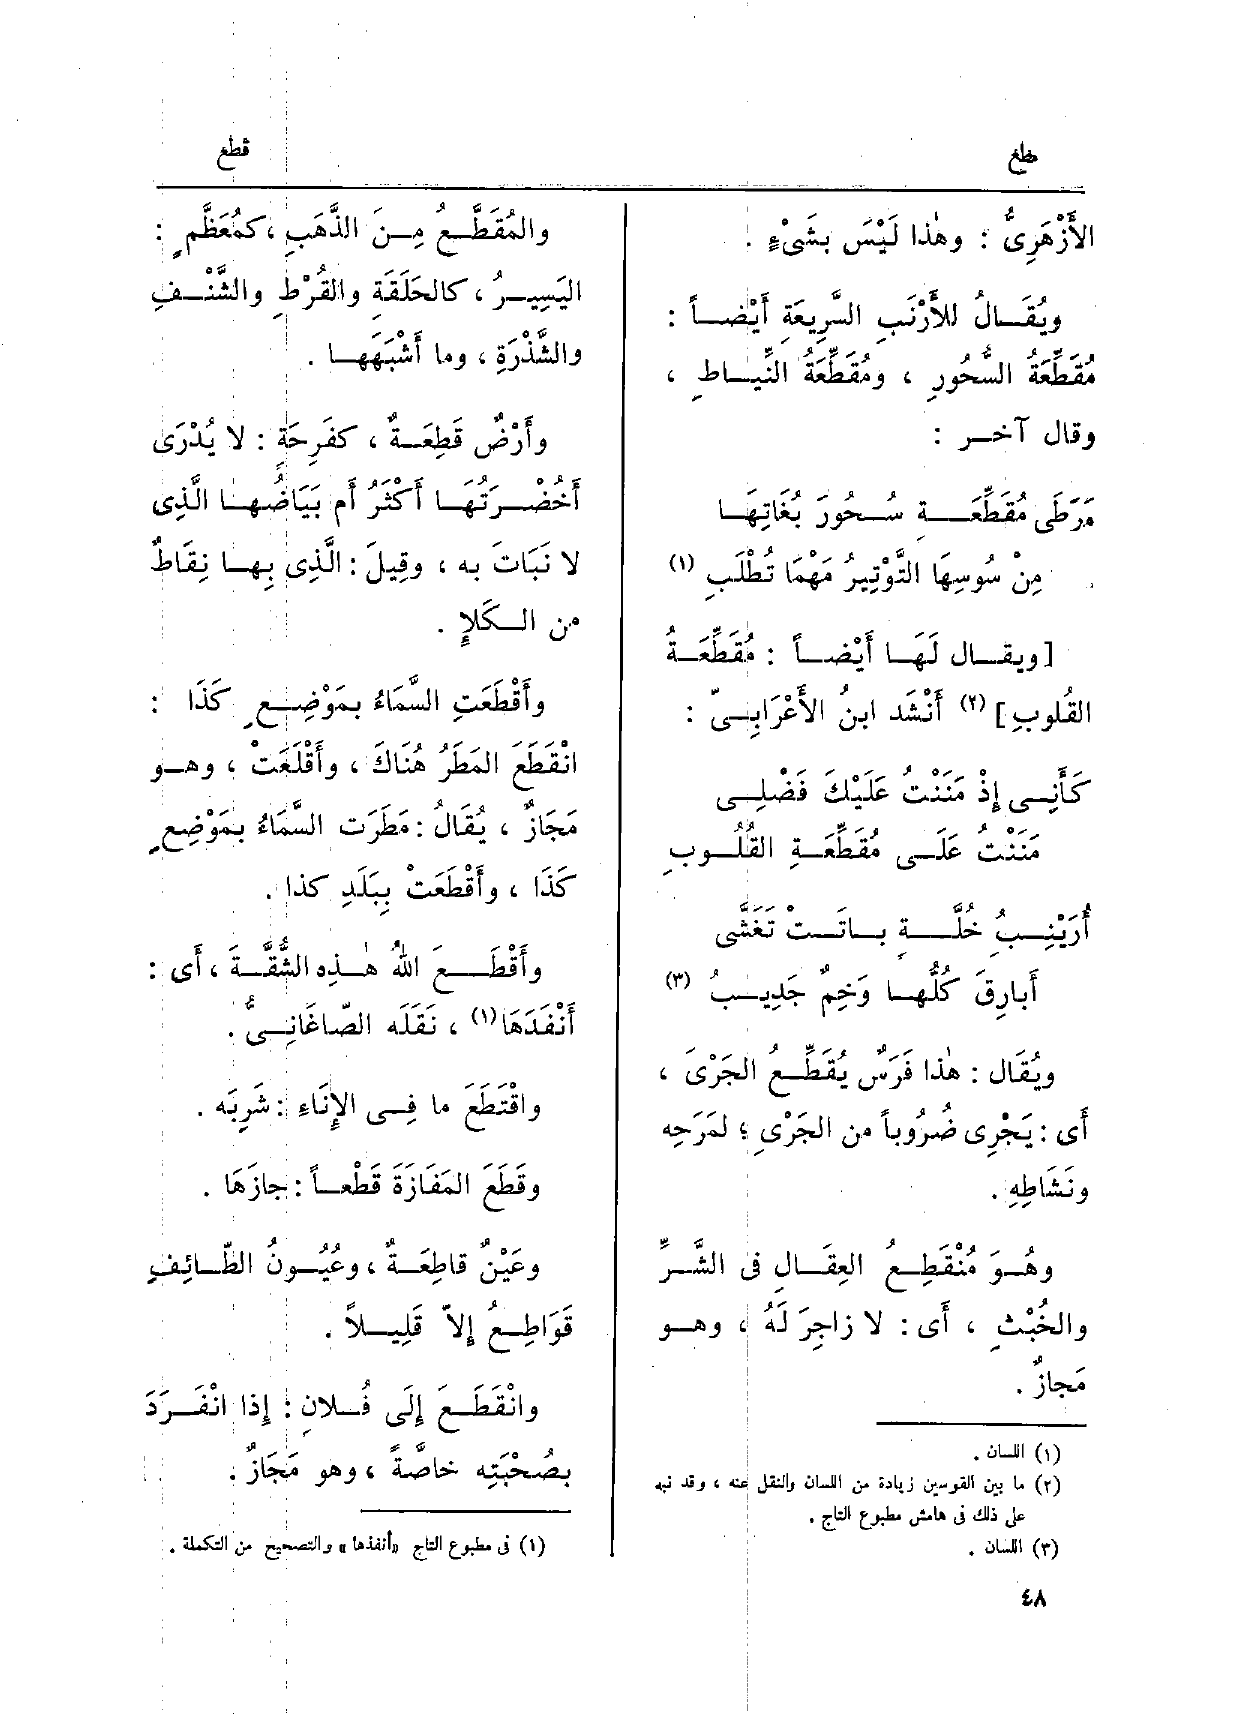 قطع
قطع
الأَزْهَرِىُّ : وهٰذا لَيْسَ بشَىْءٍ .
ويُقَــالُ للأَرْنَبِ السَّرِيعَةِ أَيْضــاً :
مُقَطِّعَةُ السُّحُورِ ، ومُقَطِّعَةُ النِّيــاطِ ،
وقال آخــر :
مَرَطَى مُقَطِّعَـــةٍ سُــحُورَ بُغَاتِهَــا
مِنْ سُوسِهَا التَّوْتِيرُ مَهْمَا تُطْلَبِ (١)
[ويقــال لَهَــا أَيْضــاً : مُقَطِّعَــةُ
القُلوبِ] (٢) أَنْشَد ابنُ الأَعْرَابِــىّ :
كَأَنِــى إِذْ مَنَنْتُ عَلَيْكَ فَضْلِــى
مَنَنْتُ عَلَــى مُقَطِّعَــةِ القُلُــوبِ
أُرَيْنِــبُ خُلَّــةٍ بــاتَــتْ تَغَشَّى
أَبارِقَ كُلُّهــا وَخِمٌ جَدِيــبُ (٣)
ويُقَال : هٰذا فَرَسٌ يُقَطِّــعُ الجَرْىَ ،
أَى : يَجْرِى ضُرُوباً من الجَرْىِ ؛ لمَرَحِه
ونَشَاطِهِ .
وهُــوَ مُنْقَطِــعُ العِقَــالِ فى الشَّــرِّ
والخُبْثِ ، أَى : لا زاجِرَ لَهُ ، وهــو
مَجازٌ .
(١) اللسان .
(٢) ما بين القوسين زيادة من اللسان والنقل عنه ، وقد نبه
على ذلك فى هامش مطبوع التاج .
(٣) اللسان .
٤٨
والمُقَطَّــعُ مِــنَ الذَّهَبِ ، كمُعَظَّمٍ :
اليَسِيــرُ ، كالحَلَقَةِ والقُرْطِ والشَّنْــفِ
والشَّذْرَةِ ، وما أَشْبَهَهــا .
وأَرْضٌ قَطِعَــةٌ ، كفَرِحَةٍ : لا يُدْرَى
أَخُضْــرَتُهَــا أَكْثَرُ أَم بَيَاضُهــا الَّذِى
لا نَبَاتَ به ، وقِيلَ : الَّذِى بِهــا نِقَاطٌ
من الــكَلَإِ .
وأَقْطَعَتِ السَّمَاءُ بمَوْضِــعِ كَذَا :
انْقَطَعَ المَطَرُ هُنَاكَ ، وأَقْلَعَتْ ، وهــو
مَجَازٌ ، يُقَالُ : مَطَرَت السَّمَاءُ بمَوْضِعِ
كَذَا ، وأَقْطَعَتْ بِبَلَدِ كذا .
وأَقْطَــعَ اللهُ هــذِه الشُّقَّــةَ ، أَى :
أَنْفَدَهَا (١) ، نَقَلَه الصّاغَانِــىُّ .
واقْتَطَعَ ما فِــى الإِنَاءِ : شَرِبَه .
وقَطَعَ المَفَازَةَ قَطْعــاً : جازَهَا .
وعَيْنٌ قاطِعَــةٌ ، وعُيُــونُ الطّــائِفِ
قَوَاطِــعُ إِلاّ قَلِيــلاً .
وانْقَطَــعَ إِلَى فُــلانٍ : إِذا انْفَــرَدَ
بصُحْبَتِه خاصَّةً ، وهو مَجَازٌ .
(١) فى مطبوع التاج «أنفذها» والتصحيح من التكملة .